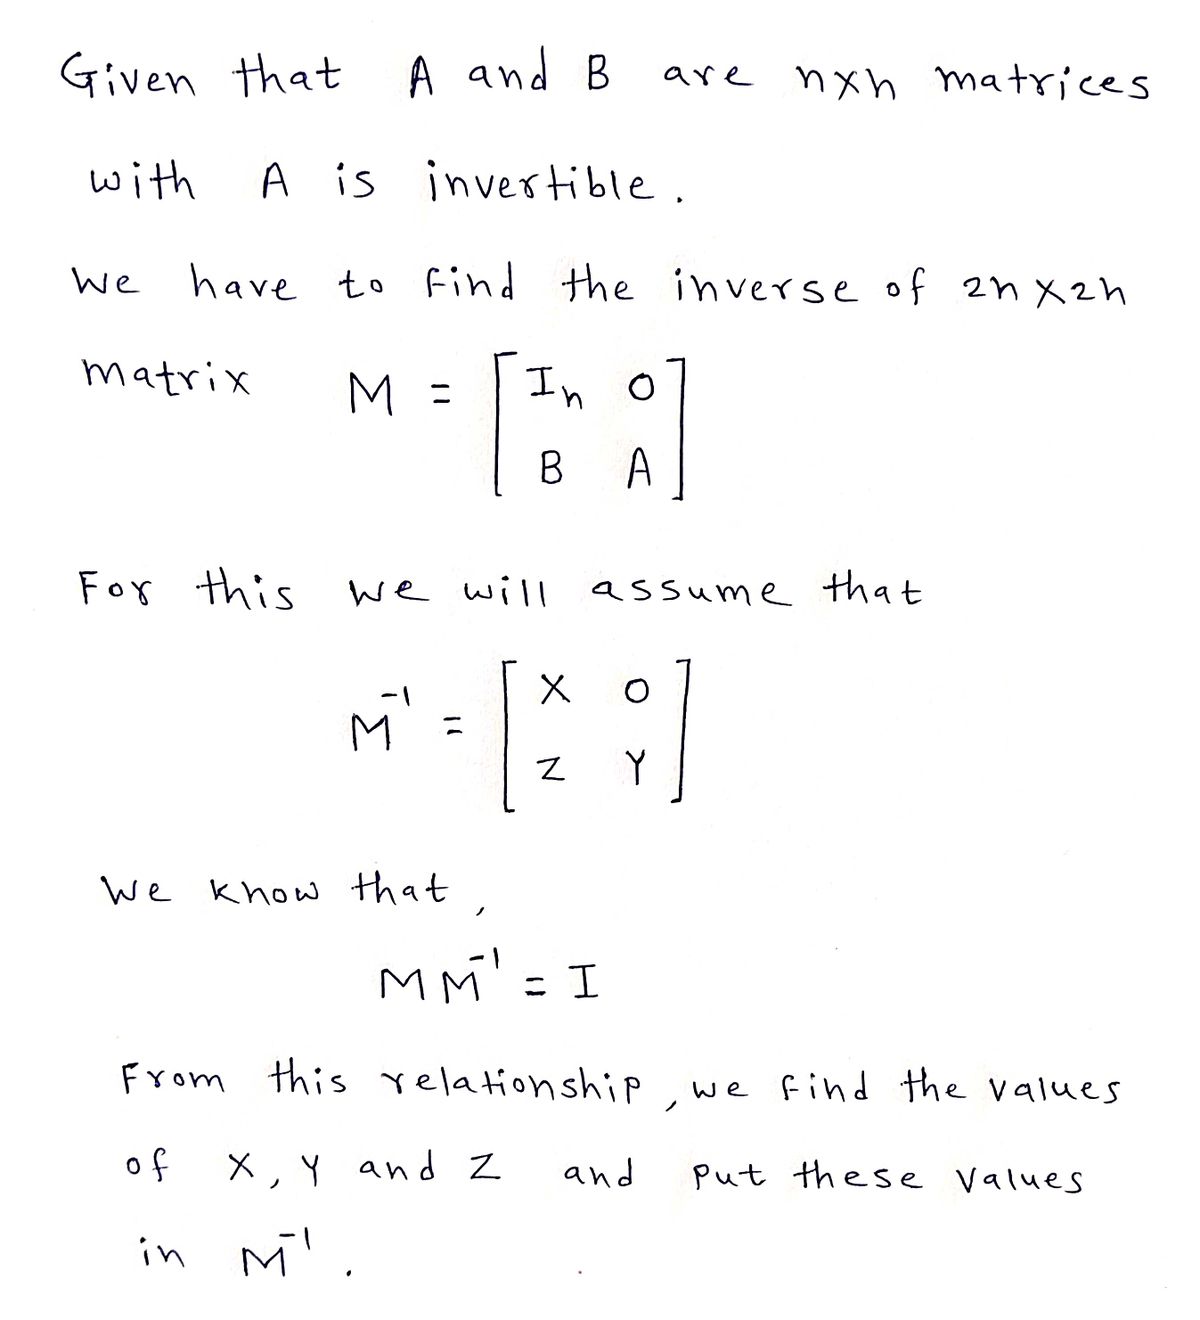 Given that A and B are nxn matrices
with A is invertible.
We have to find the inverse of 2n x2n
matrix M = [ In 0
B A ]
For this we will assume that
M⁻¹ = [ X 0
Z Y ]
We know that,
M M⁻¹ = I
From this relationship, we find the values
of X, Y and Z and put these values
in M⁻¹.